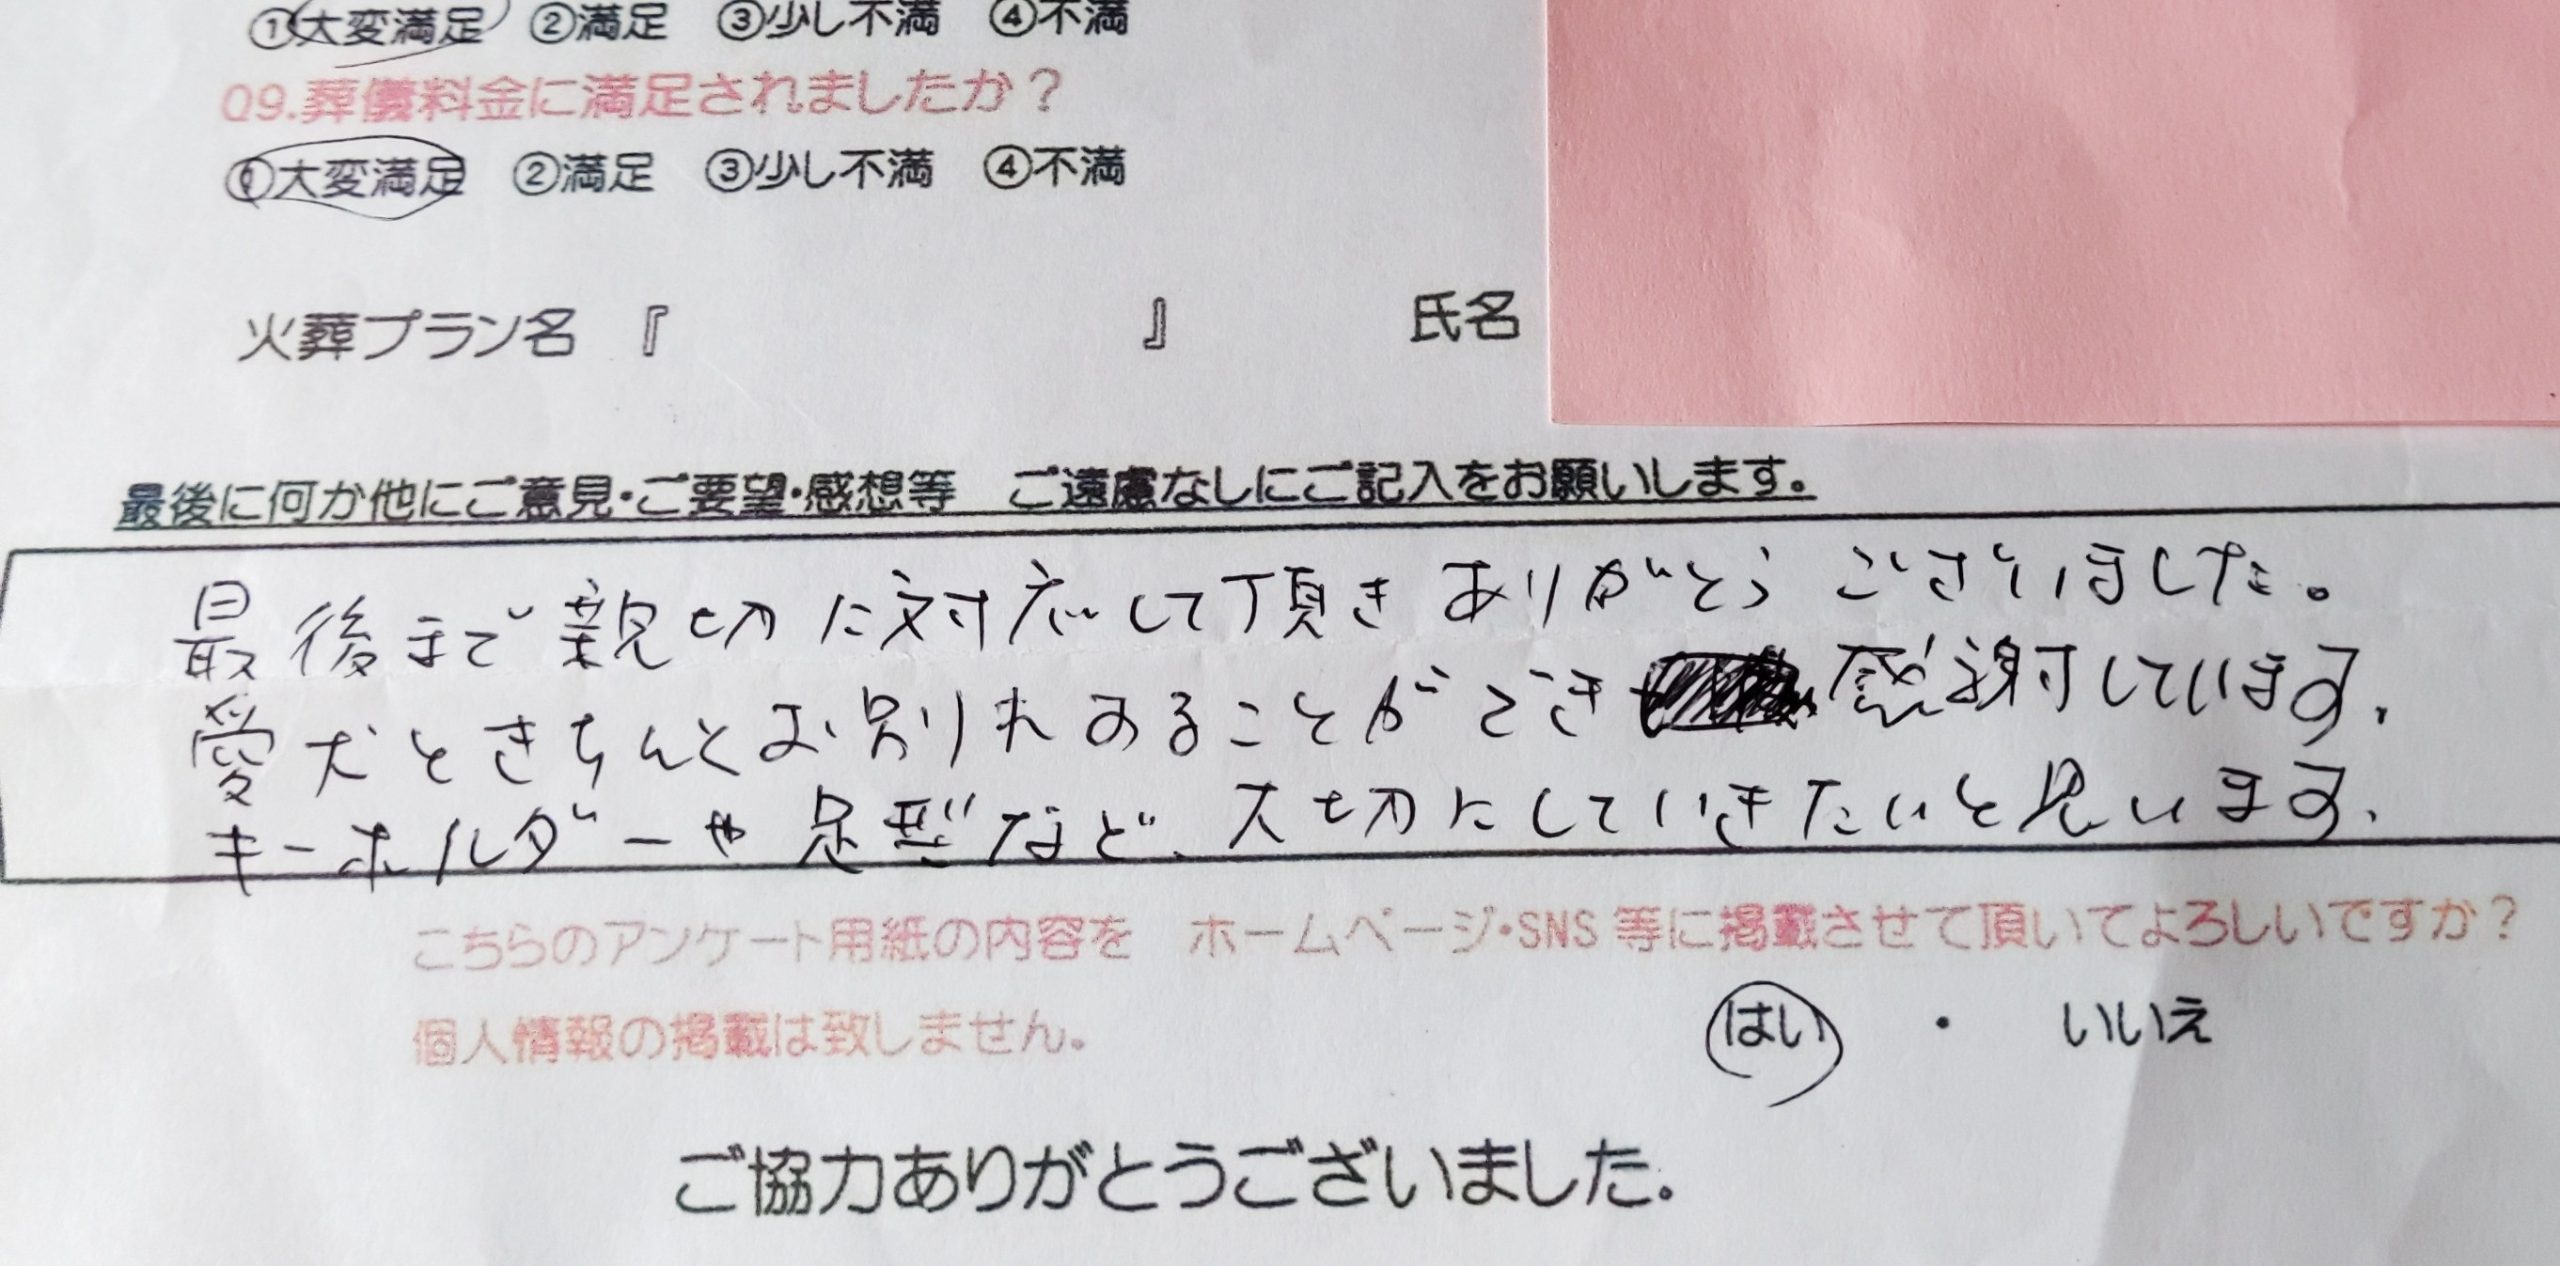 ①大変満足 ②満足 ③少し不満 ④不満
Q9.葬儀料金に満足されましたか？
①大変満足 ②満足 ③少し不満 ④不満
火葬プラン名 『 』 氏名
最後に何か他にご意見・ご要望・感想等 ご遠慮なしにご記入をお願いします。
最後まで親切に対応して頂きありがとうございました。
愛犬ときちんとお別れすることができ 感謝しています。
キーホルダーや足型など、大切にしていきたいと思います。
こちらのアンケート用紙の内容を ホームページ・SNS 等に掲載させて頂いてよろしいですか？
個人情報の掲載は致しません。
はい ・ いいえ
ご協力ありがとうございました。